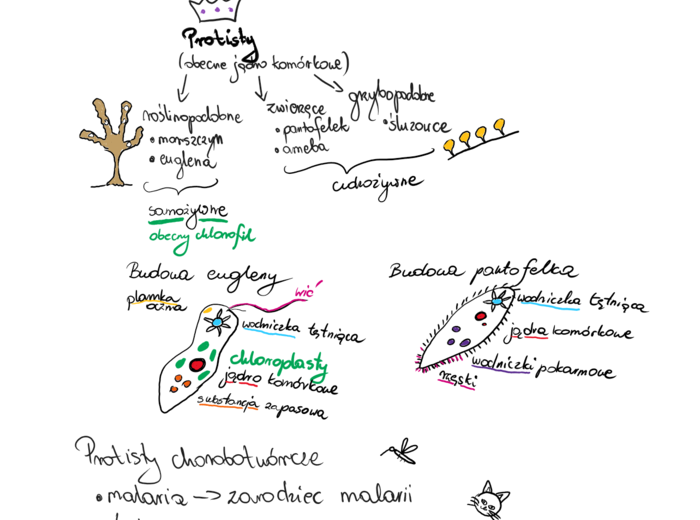 Protisty
(obecne jądro komórkowe)
roślinopodobne
• morszczyn
• euglena
zwierzęce
• pantofelek
• ameba
grzybopodobne
• śluzowce
samożywne
obecny chlorofil
cudzożywne
Budowa eugleny
plamka
oczna
wić
wodniczka tętniąca
chloroplasty
jądro komórkowe
substancja zapasowa
Budowa pantofelka
wodniczka tętniąca
jądra komórkowe
wodniczki pokarmowe
rzęski
Protisty chorobotwórcze
• malaria -> zarodziec malarii